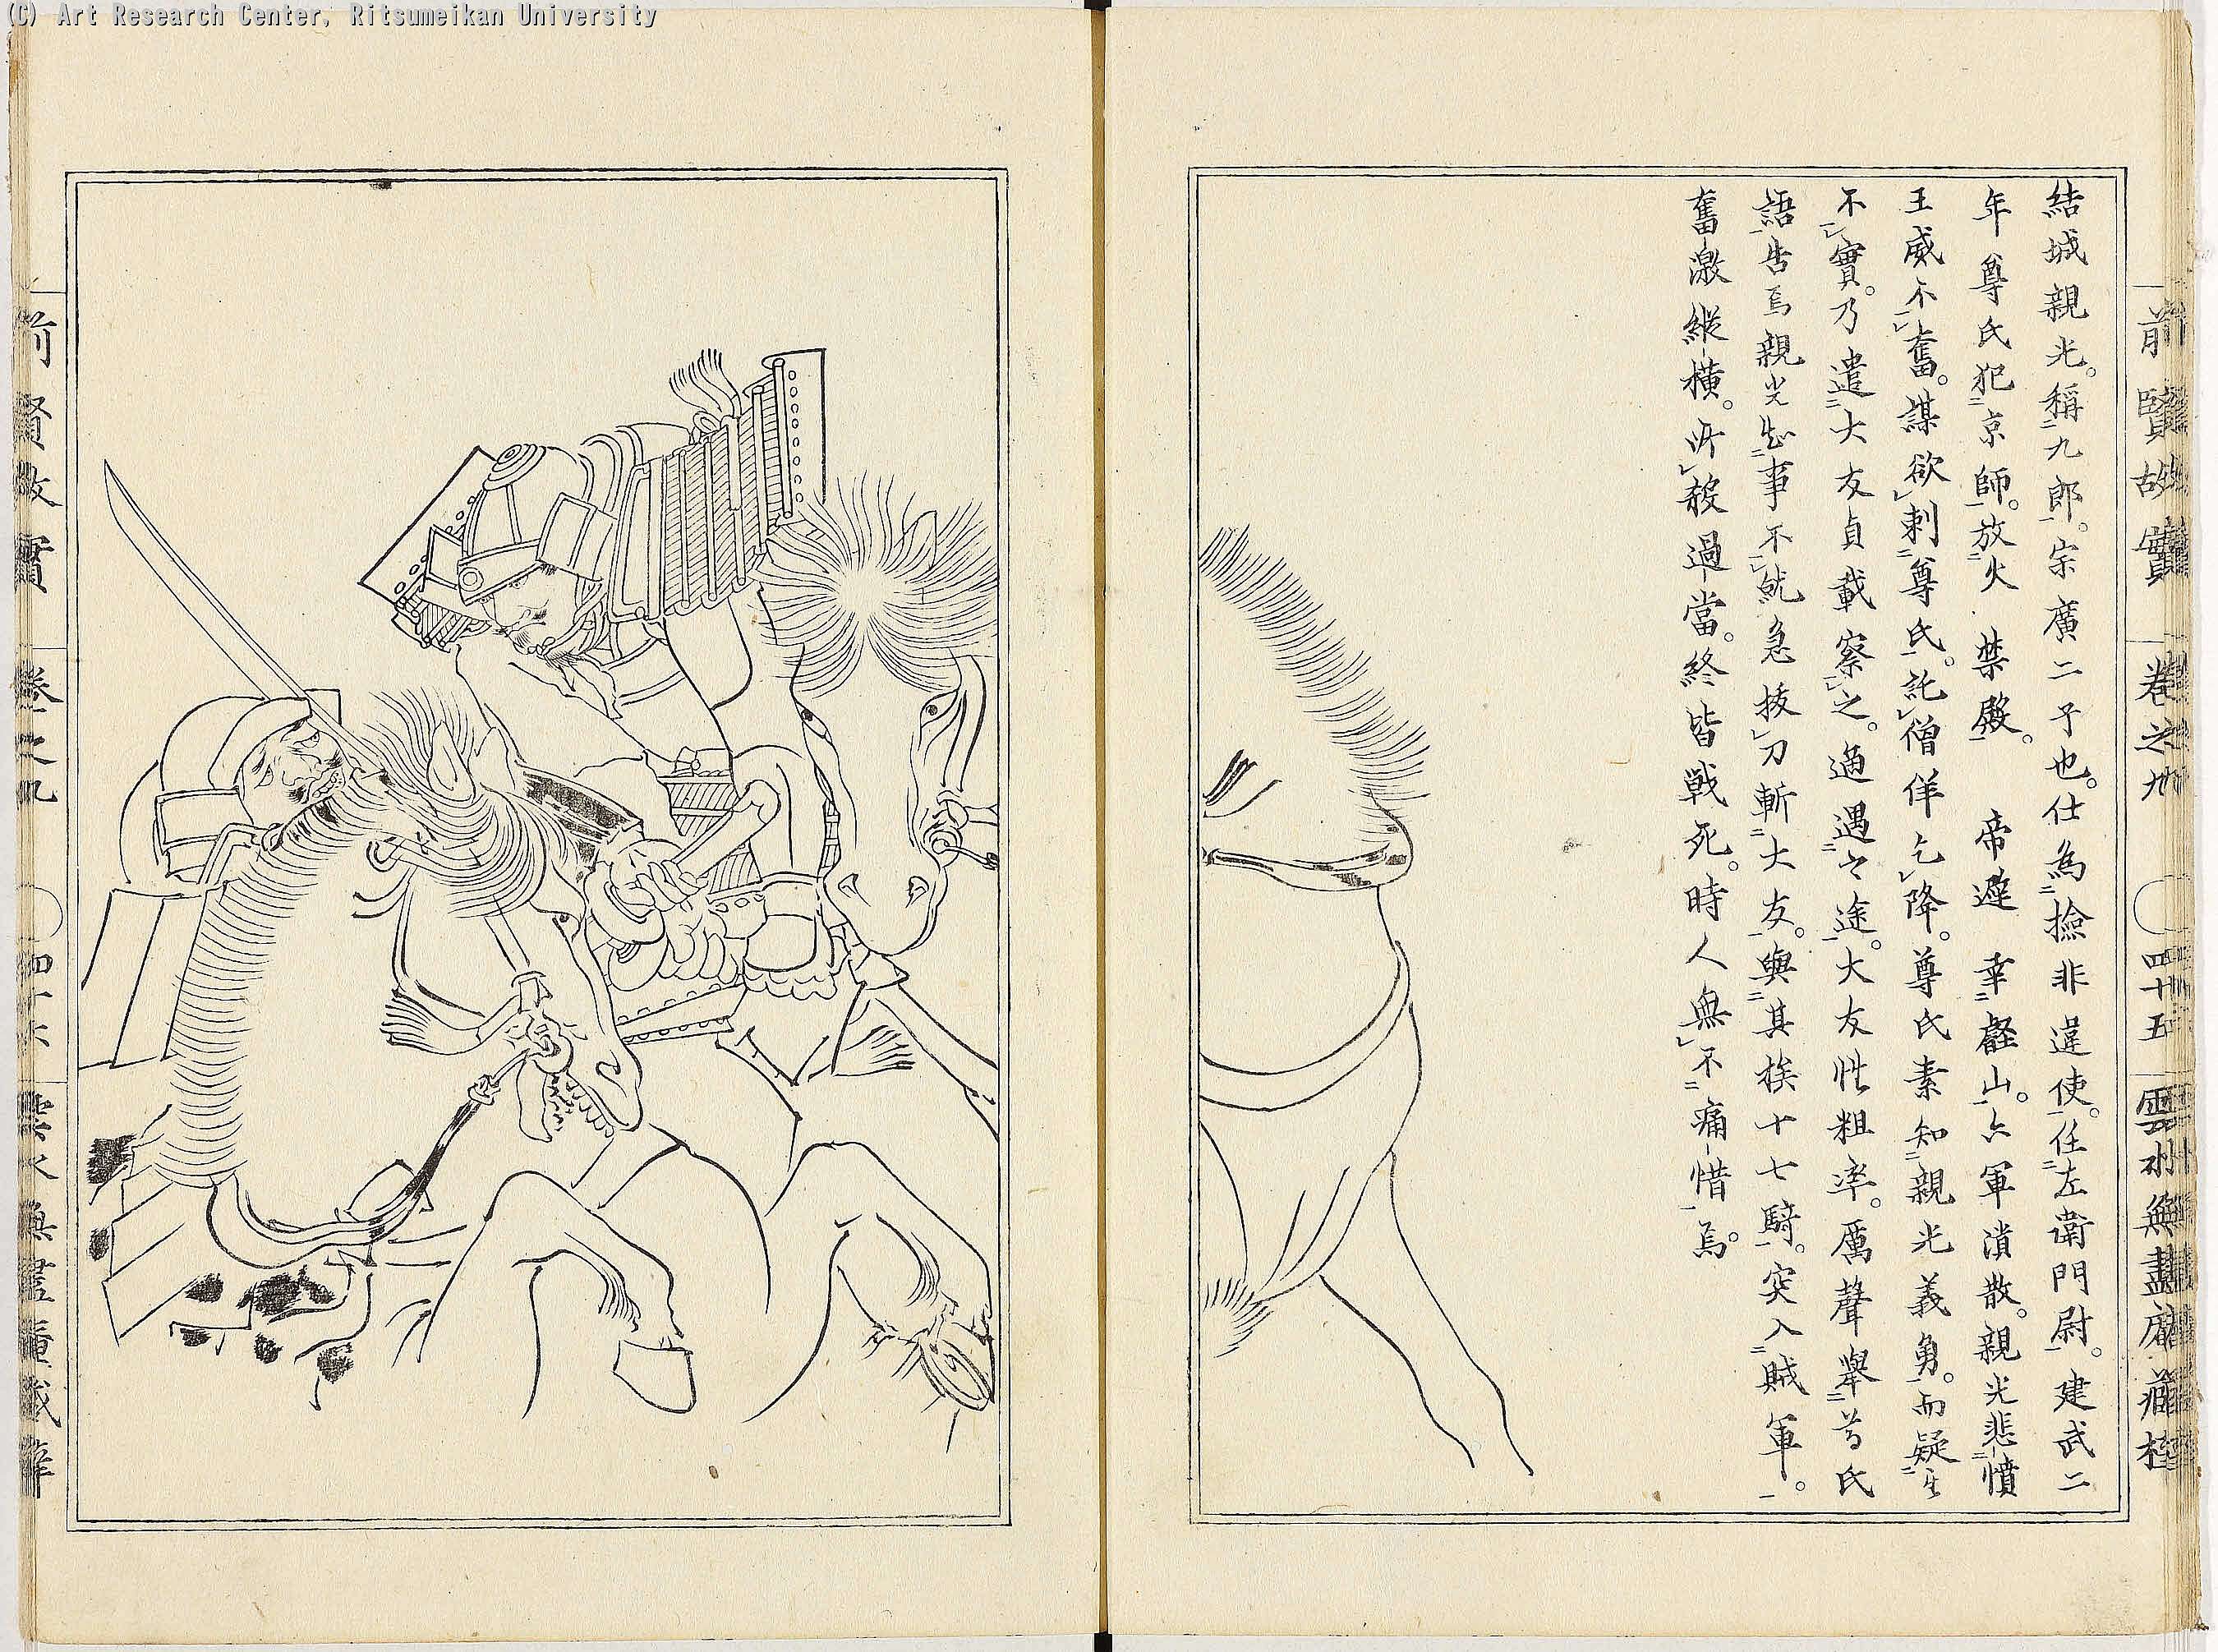 (C) Art Research Center, Ritsumeikan University
前賢故實 卷之九 四十五 雲水無盡庵藏梓
結城親光。稱九郎。宗廣二子也。仕為撿非違使。任左衛門尉。建武二
年尊氏犯京師。放火禁殿。帝遊幸叡山。六軍潰散。親光悲憤
王威不奮。謀欲刺尊氏。託僧佯乞降。尊氏素知親光義勇。而疑其
不實。乃遣大友貞載察之。適遇之途。大友性粗率。厲聲舉尊氏
語告焉親光知事不就急拔刀斬大友。與其族十七騎。突入賊軍。
奮激縱橫。所殺過當。終皆戰死。時人無不痛惜焉。
前賢故實 卷之九 四十六 雲水無盡庵藏梓